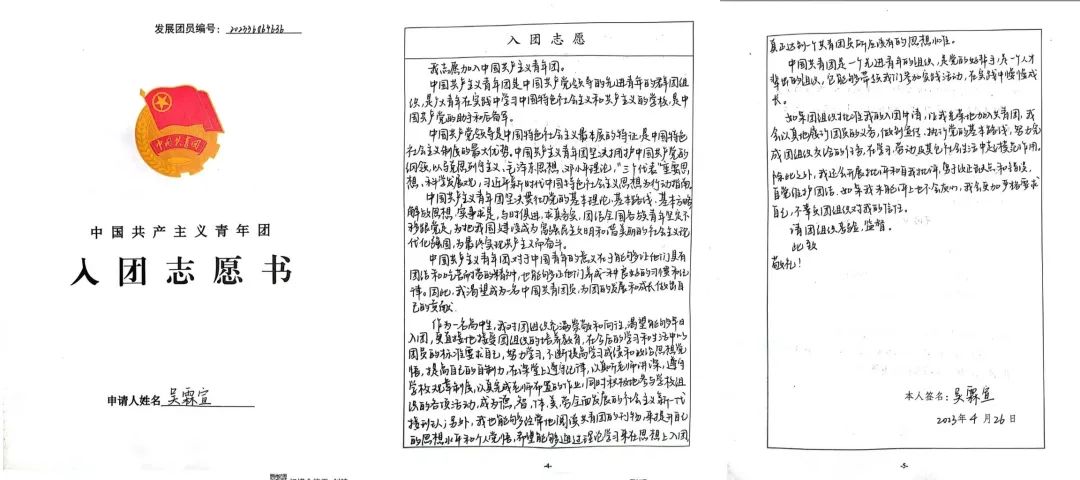 发展团员编号：202336864636
中国共青团
中国共产主义青年团
入团志愿书
申请人姓名 吴霖宣
入团志愿
我志愿加入中国共产主义青年团。
中国共产主义青年团是中国共产党领导的先进青年的群团组
织，是广大青年在实践中学习中国特色社会主义和共产主义的学校，是中
国共产党的助手和后备军。
中国共产党领导是中国特色社会主义最本质的特征，是中国特色
社会主义制度的最大优势。中国共产主义青年团坚决拥护中国共产党的
纲领，以马克思列宁主义、毛泽东思想、邓小平理论、“三个代表”重要思
想、科学发展观、习近平新时代中国特色社会主义思想为行动指南
中国共产主义青年团坚决贯彻党的基本理论、基本路线、基本方略
解放思想，实事求是，与时俱进，求真务实，团结全国各族青年坚定不
移跟党走，为把我国建设成为富强民主文明和谐美丽的社会主义现
代化强国，为最终实现共产主义而奋斗。
中国共产主义青年团，对于中国青年的意义不于能够让他们具有
团结和吃苦耐劳的精神，也能够让他们养成一种良好的习惯和纪
律。因此，我渴望成为一名中国共青团员，为团的发展和成长做出自
己的贡献。
作为一名高中生，我对团组织充满崇敬和向往，渴望能够早日
入团，更直接地接受团组织的培养教育，在今后的学习和生活中以
团员的标准要求自己，努力学习，不断提高学习成绩和政治思想觉
悟，提高自己的自制力，在课堂上遵守纪律，认真听老师讲课，遵守
学校规章制度，认真完成老师布置的作业，同时积极地参与学校组
织的各项活动，成为德、智、体、美、劳全面发展的社会主义新一代
接班人；另外，我也能够经常地阅读共青团的刊物，来提升自己
的思想水平和个人觉悟，希望能够通过理论学习来在思想上入团
4
真正达到一个共青团员所应该有的思想水准。
中国共青团是一个先进青年的组织，是党的好帮手，是一个人才
辈出的组织，它能够带领我们参加实践活动，在实践中慢慢成
长。
如果团组织批准我的入团申请，让我光荣地加入共青团，我
会认真地履行团员的义务，做到宣传、执行党的基本路线，努力完
成团组织交给的任务，在学习、劳动及其它社会生活中起模范作用。
除此之外，我还会开展批评和自我批评，勇于改正缺点和错误，
自觉维护团结。如果我未能评上也不会灰心，我会更加严格要求
自己，不辜负团组织对我的信任。
请团组织考验、监督。
此致
敬礼！
本人签名：吴霖宣
2023年4月26日
5